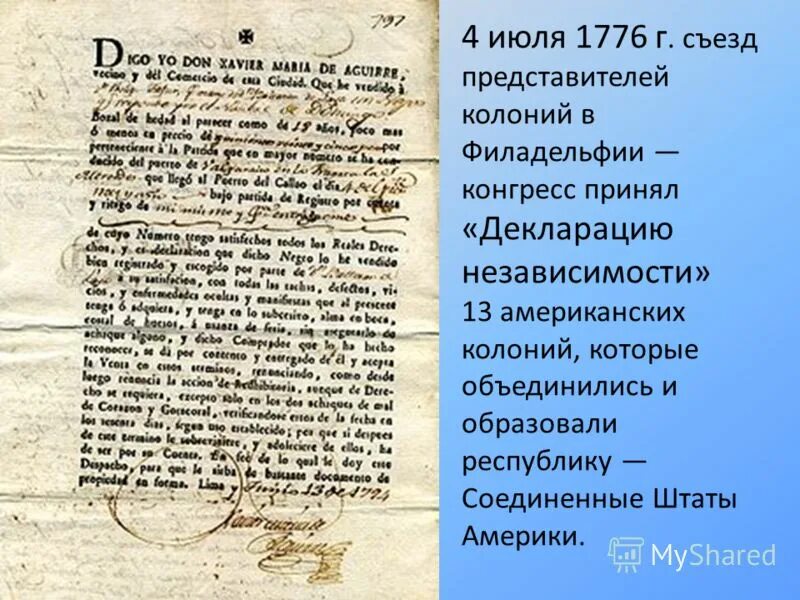 797
DIGO YO DON XAVIER MARIA DE AGUIRRE,
vecino y dél Comercio de esta Ciudad. Que he vendido à
Bozal de hedad al parecer como de 18 años, poco mas
ó menos en precio de
perteneciente à la Partida que en mayor número se ha con-
ducido del puerto de
que llegó al Puerto del Callao el dia 4 de
bajo partida de Registro por cuenta
y riesgo de
de cuyo Numero tengo satisfechos todos los Reales Dere-
chos, y es declaracion que dicho Negro lo he vendido
bien registrado y escogido por parte de
à su satisfacion, con todas las tachas, defectos, vi-
cios, y enfermedades ocultas y manifiestas que al presente
tenga ò adquiera, y tenga en lo subcesivo, alma en boca,
costal de huesos, á usanza de feria, sin asegurarlo de
achaque alguno, y dicho Comprador que lo ha hecho
reconocer, se dà por contento y entregado de él y acepta
la Venta en estos terminos, renunciando, como desde
luego renuncia la accion de Redhibitoria, aunque de Dere-
cho se requiera, excepto solo en los dos achaques de mal
de Corazon y Gotacoral, verificandose estos de la fecha en
los sesenta dias, segun uso establecido; pues si despues
de este termino le sobreviniere, y adoleciere de ellos, ha
de ser por su Cuenta. En fé de lo qual le doy este
Despacho, para que le sirba de bastante documento de
propiedad en forma. Lima y Junio 13 de 1794
4 июля 1776 г. съезд
представителей
колоний в
Филадельфии —
конгресс принял
«Декларацию
независимости»
13 американских
колоний, которые
объединились и
образовали
республику —
Соединенные Штаты
Америки.
MyShared